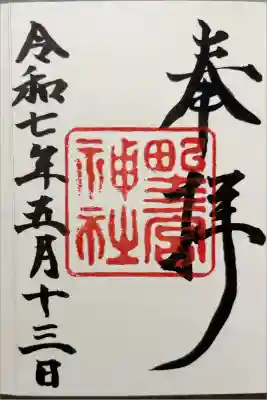 奉拝
野宮神社
令和七年五月十三日